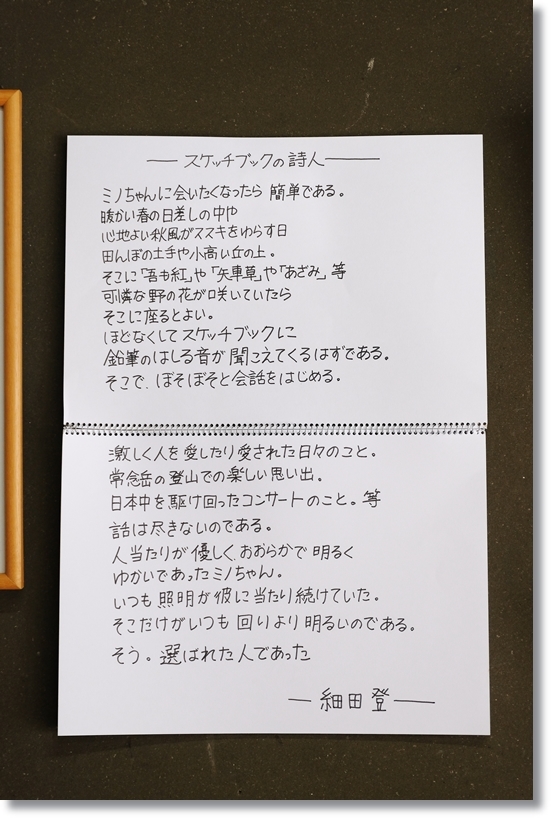 ― スケッチブックの詩人 ―
ミノちゃんに会いたくなったら 簡単である。
暖かい春の日差しの中や
心地よい秋風がススキをゆらす日
田んぼの土手や小高い丘の上。
そこに「吾も紅」や「矢車草」や「あざみ」等
可憐な野の花が咲いていたら
そこに座るとよい。
ほどなくしてスケッチブックに
鉛筆のはしる音が聞こえてくるはずである。
そこで、ぼそぼそと会話をはじめる。
激しく人を愛したり愛された日々のこと。
常念岳の登山での楽しい思い出。
日本中を駆け回ったコンサートのこと。等
話は尽きないのである。
人当たりが優しく、おおらかで明るく
ゆかいであったミノちゃん。
いつも照明が彼に当たり続けていた。
そこだけがいつも回りより明るいのである。
そう。選ばれた人であった
― 細田 登 ―